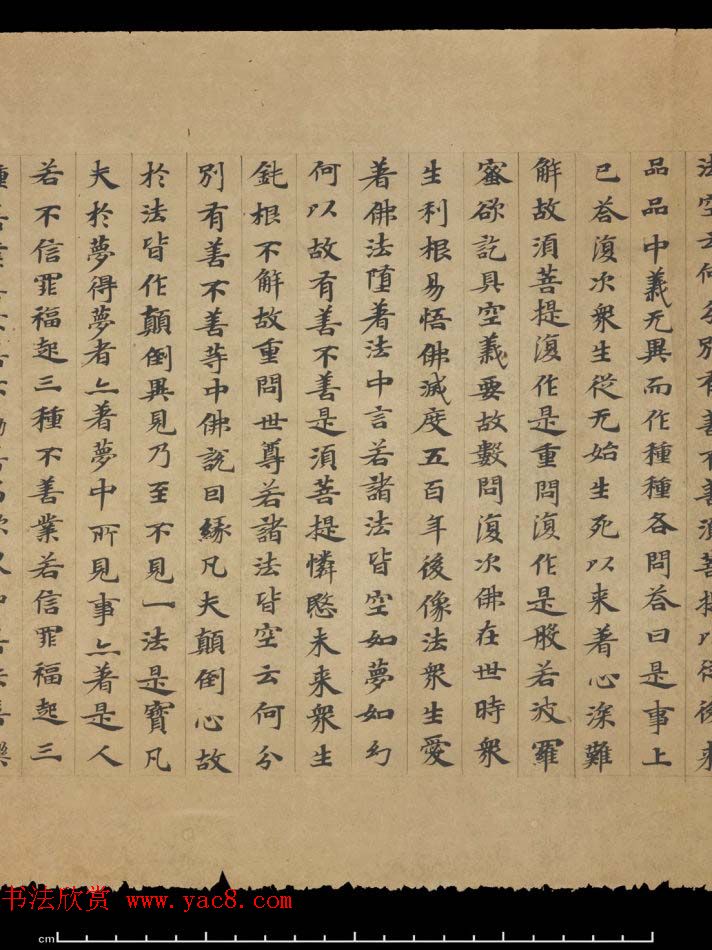 法空云何分別有善不善須菩提以從後來
品品中義无異而作種種各問荅曰是事上
已荅復次衆生従无始生死以来著心深難
解故須菩提復作是重問復作是般若波羅
蜜欲訖具空義要故數問復次佛在世時衆
生利根易悟佛滅度五百年後像法衆生愛
著佛法堕著法中言若諸法皆空如夢如幻
何以故有善不善是須菩提憐愍未来衆生
鈍根不解故重問世尊若諸法皆空云何分
別有善不善等中佛說因緣凡夫顛倒心故
於法皆作顛倒異見乃至不見一法是實凡
夫於夢得夢者亦著夢中所見事亦著是人
若不信罪福起三種不善業若信罪福起三
書法欣赏 www.yac8.com
cm